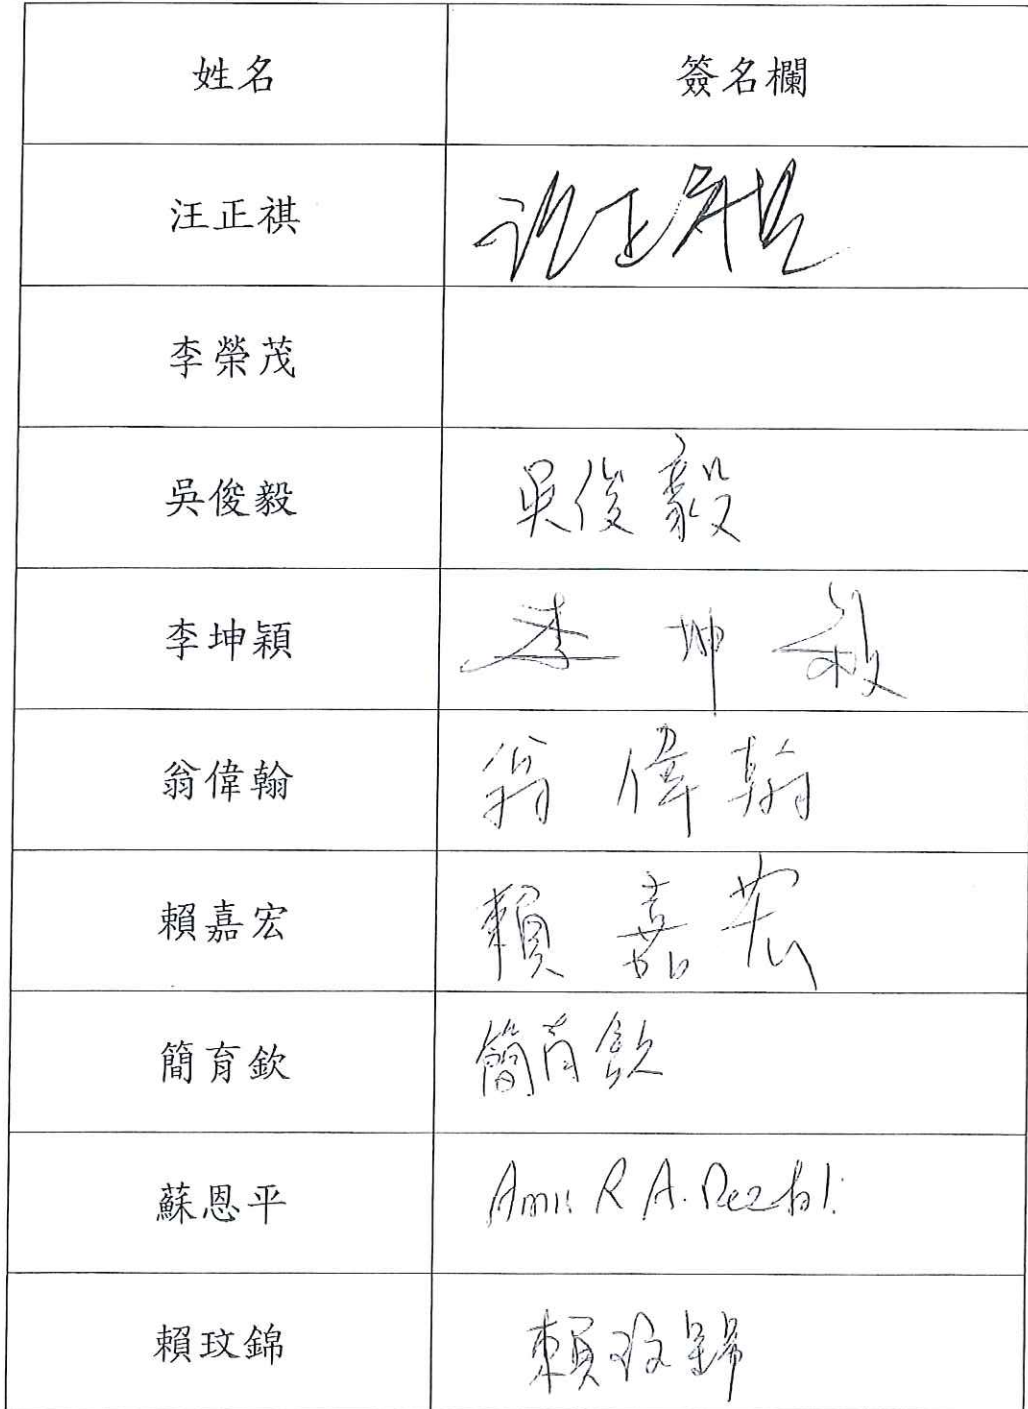 姓名 簽名欄
汪正祺 汪正祺
李榮茂
吳俊毅 吳俊毅
李坤穎 李坤
翁偉翰 翁偉翰
賴嘉宏 賴嘉宏
簡育欽 簡育欽
蘇恩平 R A.
賴玟錦 賴玟錦